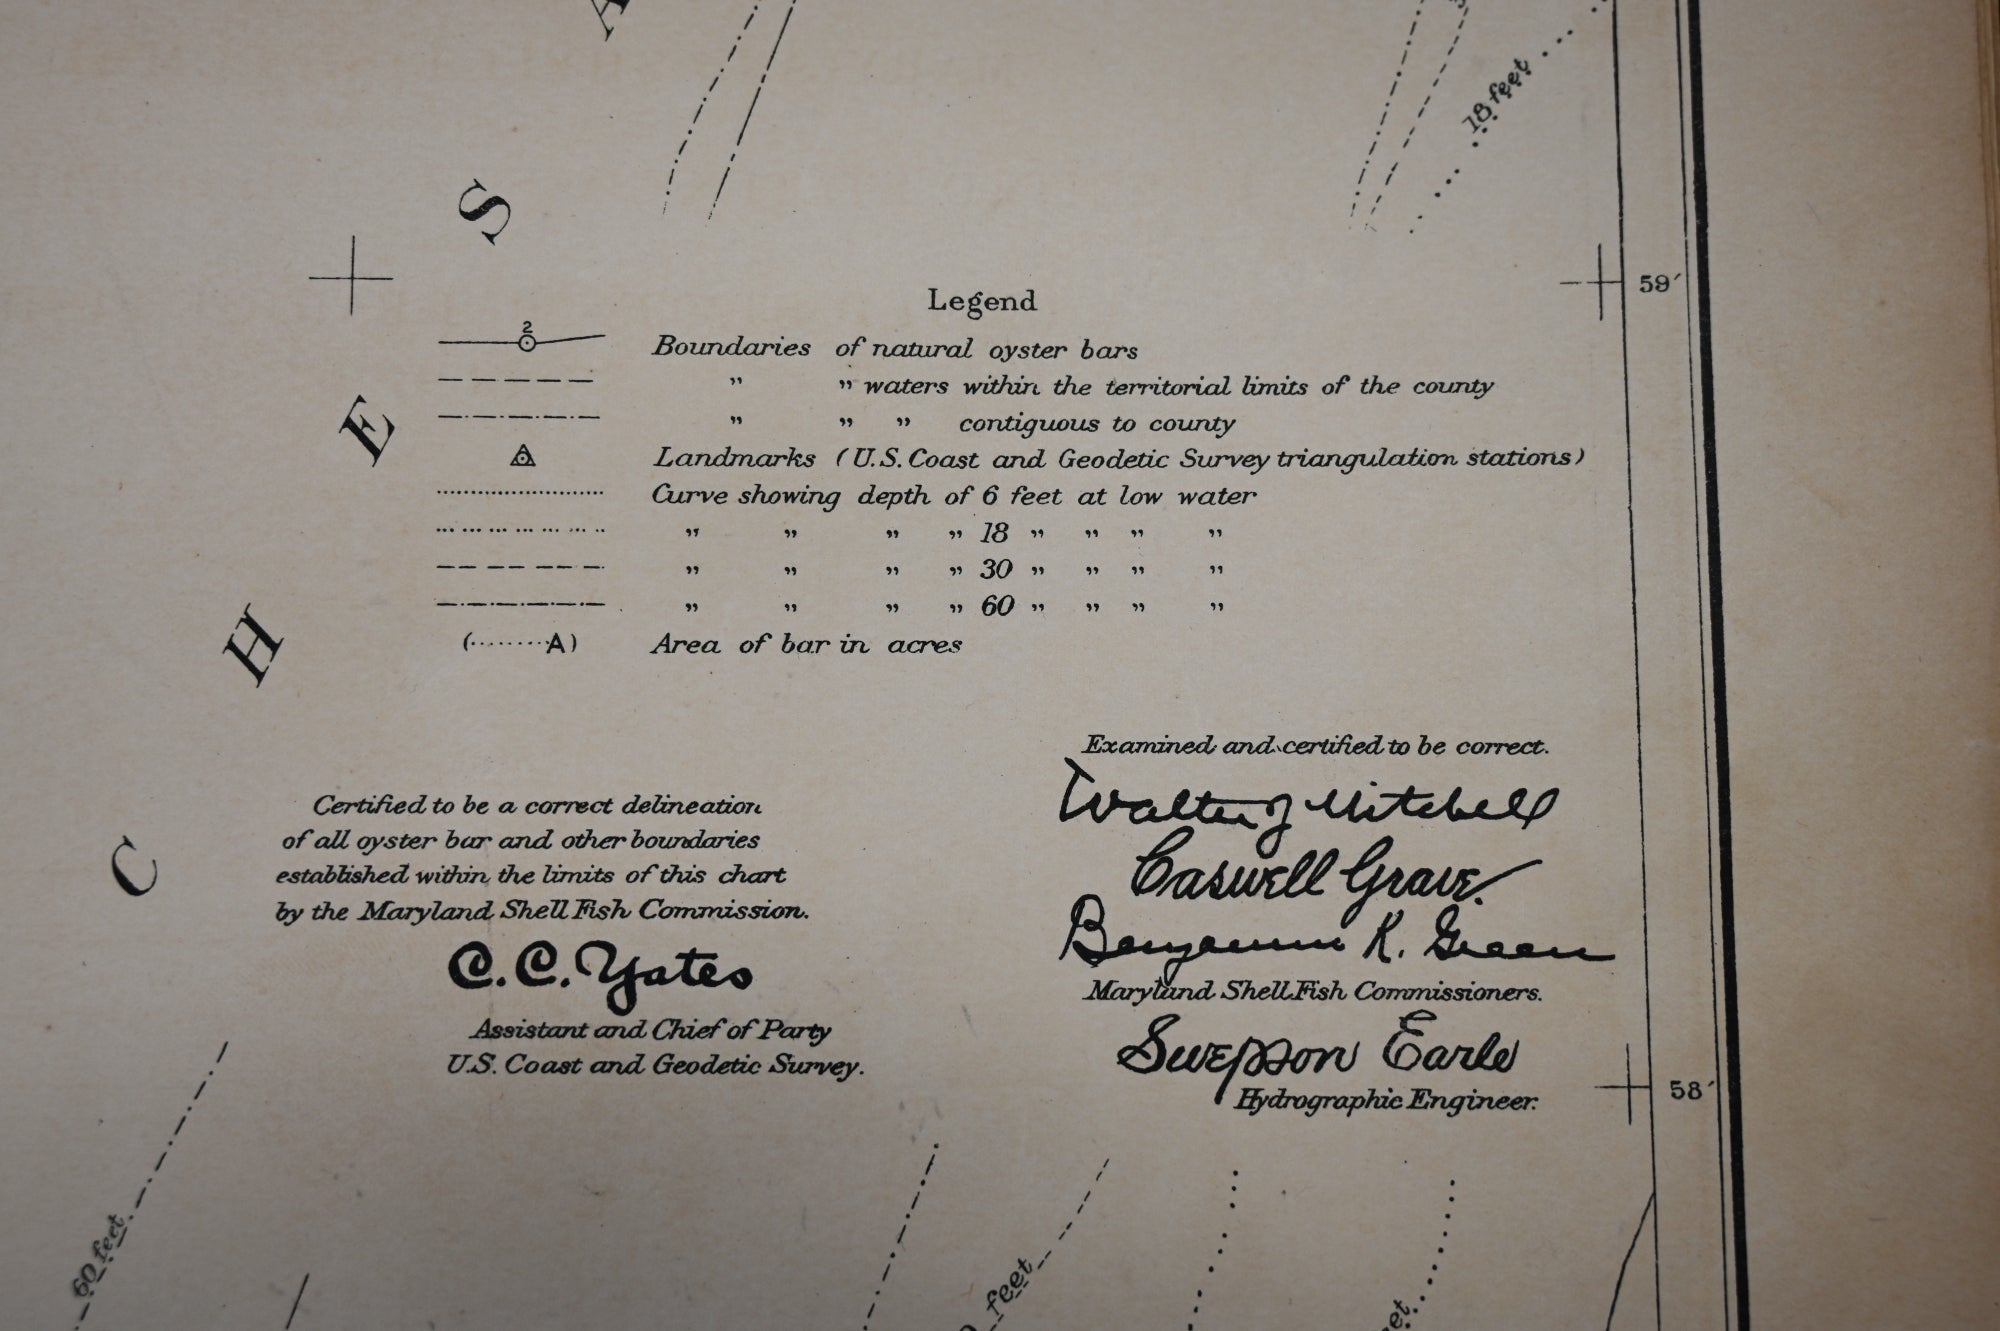 A
18 feet
S
59′
Legend
2
Boundaries of natural oyster bars
” ” waters within the territorial limits of the county
” ” ” contiguous to county
Landmarks (U.S. Coast and Geodetic Survey triangulation stations)
Curve showing depth of 6 feet at low water
” ” ” ” 18 ” ” ” ”
” ” ” ” 30 ” ” ” ”
” ” ” ” 60 ” ” ” ”
(........A) Area of bar in acres
E
H
C
Certified to be a correct delineation
of all oyster bar and other boundaries
established within the limits of this chart
by the Maryland Shell Fish Commission.
C. C. Yates
Assistant and Chief of Party
U.S. Coast and Geodetic Survey.
Examined and certified to be correct.
Walter J Mitchell
Caswell Grave.
Benjamin K. Green
Maryland Shell Fish Commissioners.
Swepson Earle
Hydrographic Engineer.
58′
60 feet
feet